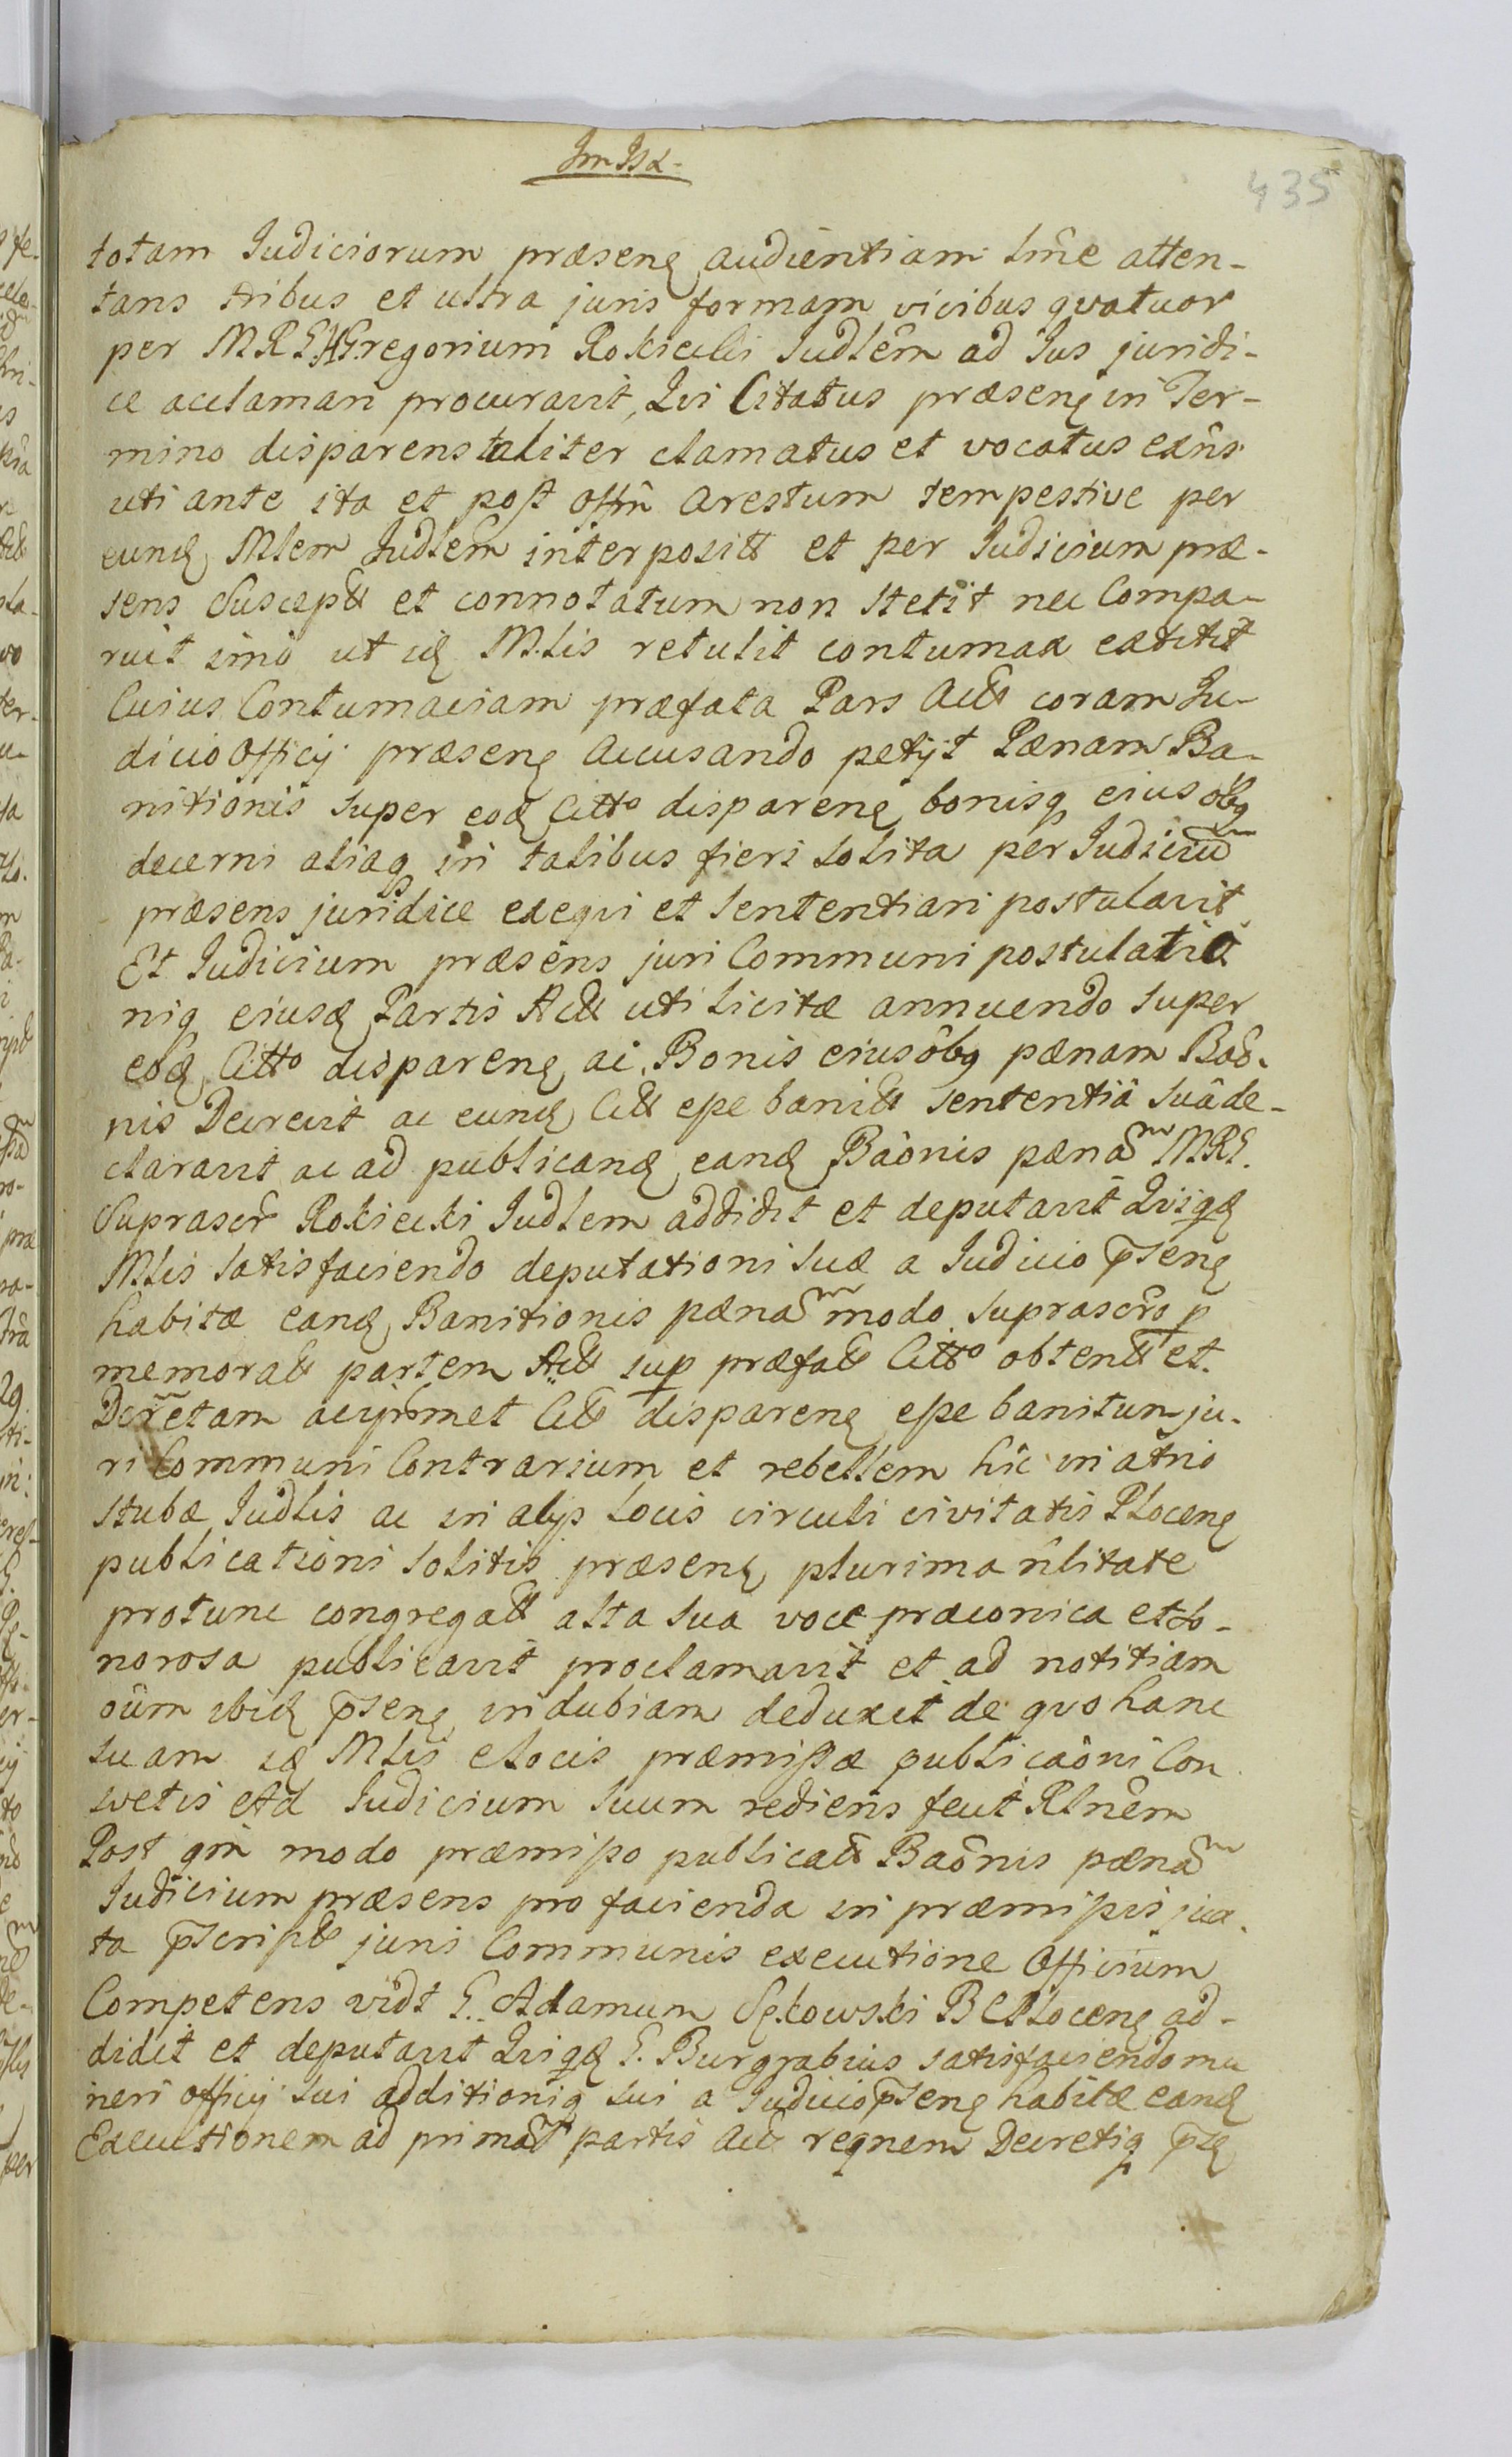 435
totam Judiciorum præsenę audientiam lme atten-
tans tribus et ultra juris formam vicibus qvatuor
per MRE Gregorium Rokicki Judlem ad Jus juridi-
ce acclamari procuravit, Qvi Citatus præsenę in Ter-
mino disparens taliter clamatus et vocatus exñs
uti ante ita et post offm arestum tempestive per
eunđ Mlem Judlem interpositt et per Judicium præ-
sens Suscept et connotatum non stetit nec Compa-
ruit imo ut iđ Mlis retulit contumax extitit
Cuius Contumaciam præfata Pars Actt coram Ju-
dicio Officij præsenę accusando petijt Pænam Ba-
nitionis super eođ Citto disparenę bonisq eius obq
decerni aliaq in talibus fieri solita per Judiciũ
præsens juridice exeqvi et sententiari postulavit
Et Judicium præsens juri Communi postulatio
niq eiusđ Partis Actt uti licitæ annuendo super
eođ Citto disparenę ac Bonis eius obq pænam Bao-
nis Decrevit ac eunđ Citt esse banitt sententiâ suâ de-
claravit ac ad publicanđ eanđ Baônis pænã MRE.
Suprascr Rokicki Judlem addidit et deputavit Qviqđ
Mlis satisfaciendo deputationi suæ a Judicio p̄senę
habitæ eanđ Banitionis pænã modo suprascro p
memoratt partem Actt sup præfatt Citto obtentt et
Decretam acipsmet Citt disparenę esse banitum ju-
ri Communi Contrarium et rebellem hîc in atrio
stubæ Judlis ac in alijs locis circuli civitatis Plocenę
publicationi solitis præsenę plurima ñlitate
protunc congregatt alta sua voce præconica et so-
norosa publicavit proclamavit et ad notitiam
oûm ibiđ p̄senę indubiam deduxit de qvo hanc
suam iđ Mlis e locis præmissæ publicaôni Con
svetis Ad Judicium suum rediens fecit Rlnêm
Post qm modo præmisso publicatt Baônis pænã
Judicium præsens pro facienda in præmissis jux-
ta p̄script juris Communis executione Officium
Competens vidt G. Adamum Sękowski BCPlocenę ad-
didit et deputavit Qviqđ G. Burgrabius satisfaciendo mu
neri officij sui additioniq sui a Judicio p̄senę habitæ eanđ
Executionem ad primãt partis Act reqnem Decretiq p̄sę